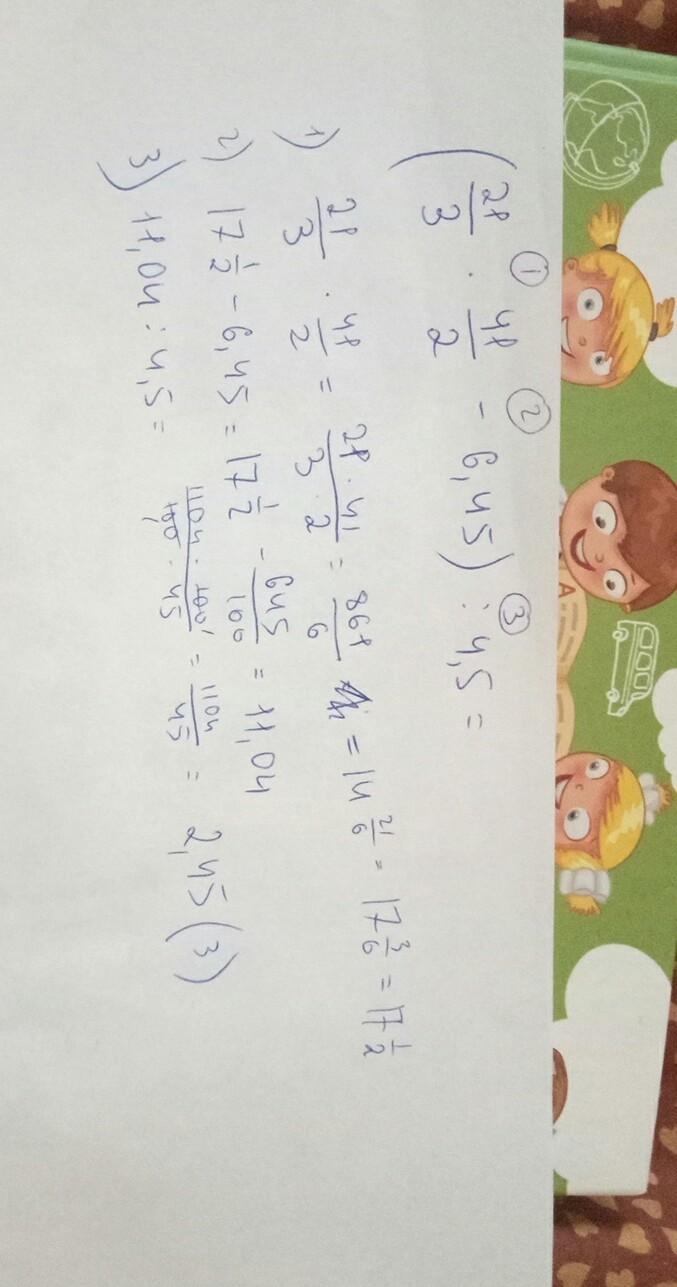 ① ② ③
(21/3 · 41/2 - 6,45) : 4,5 =
1) 21/3 · 41/2 = 21 · 41/3 · 2 = 861/6 = 14 21/6 = 17 3/6 = 17 1/2
2) 17 1/2 - 6,45 = 17 1/2 - 645/100 = 11,04
3) 11,04 : 4,5 = 1104 · 100/100 · 45 = 1104/45 = 2,45(3)
A